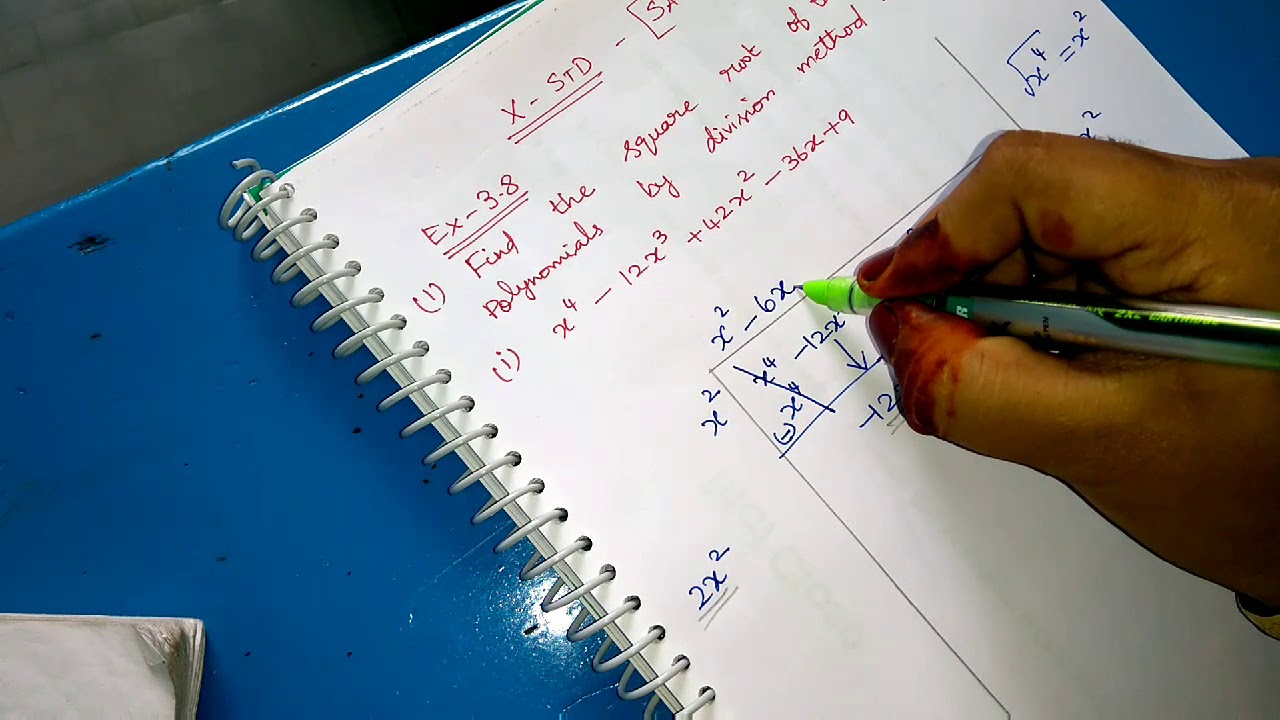 X - STD -
Ex - 3.8
(1) Find the square root of
polynomials by division method
(i) x⁴ - 12x³ + 42x² - 36x + 9
√x⁴ = x²
x²
x² - 6x
x² x⁴ - 12x
(-) x⁴
-12
2x²